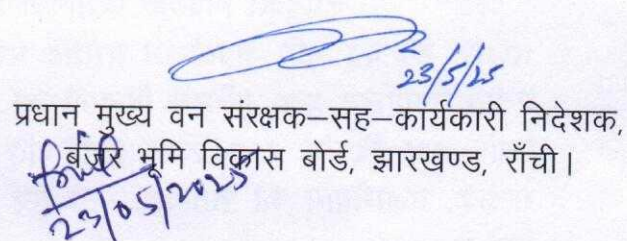 23/5/25
प्रधान मुख्य वन संरक्षक–सह–कार्यकारी निदेशक,
बंजर भूमि विकास बोर्ड, झारखण्ड, राँची।
23/05/2025